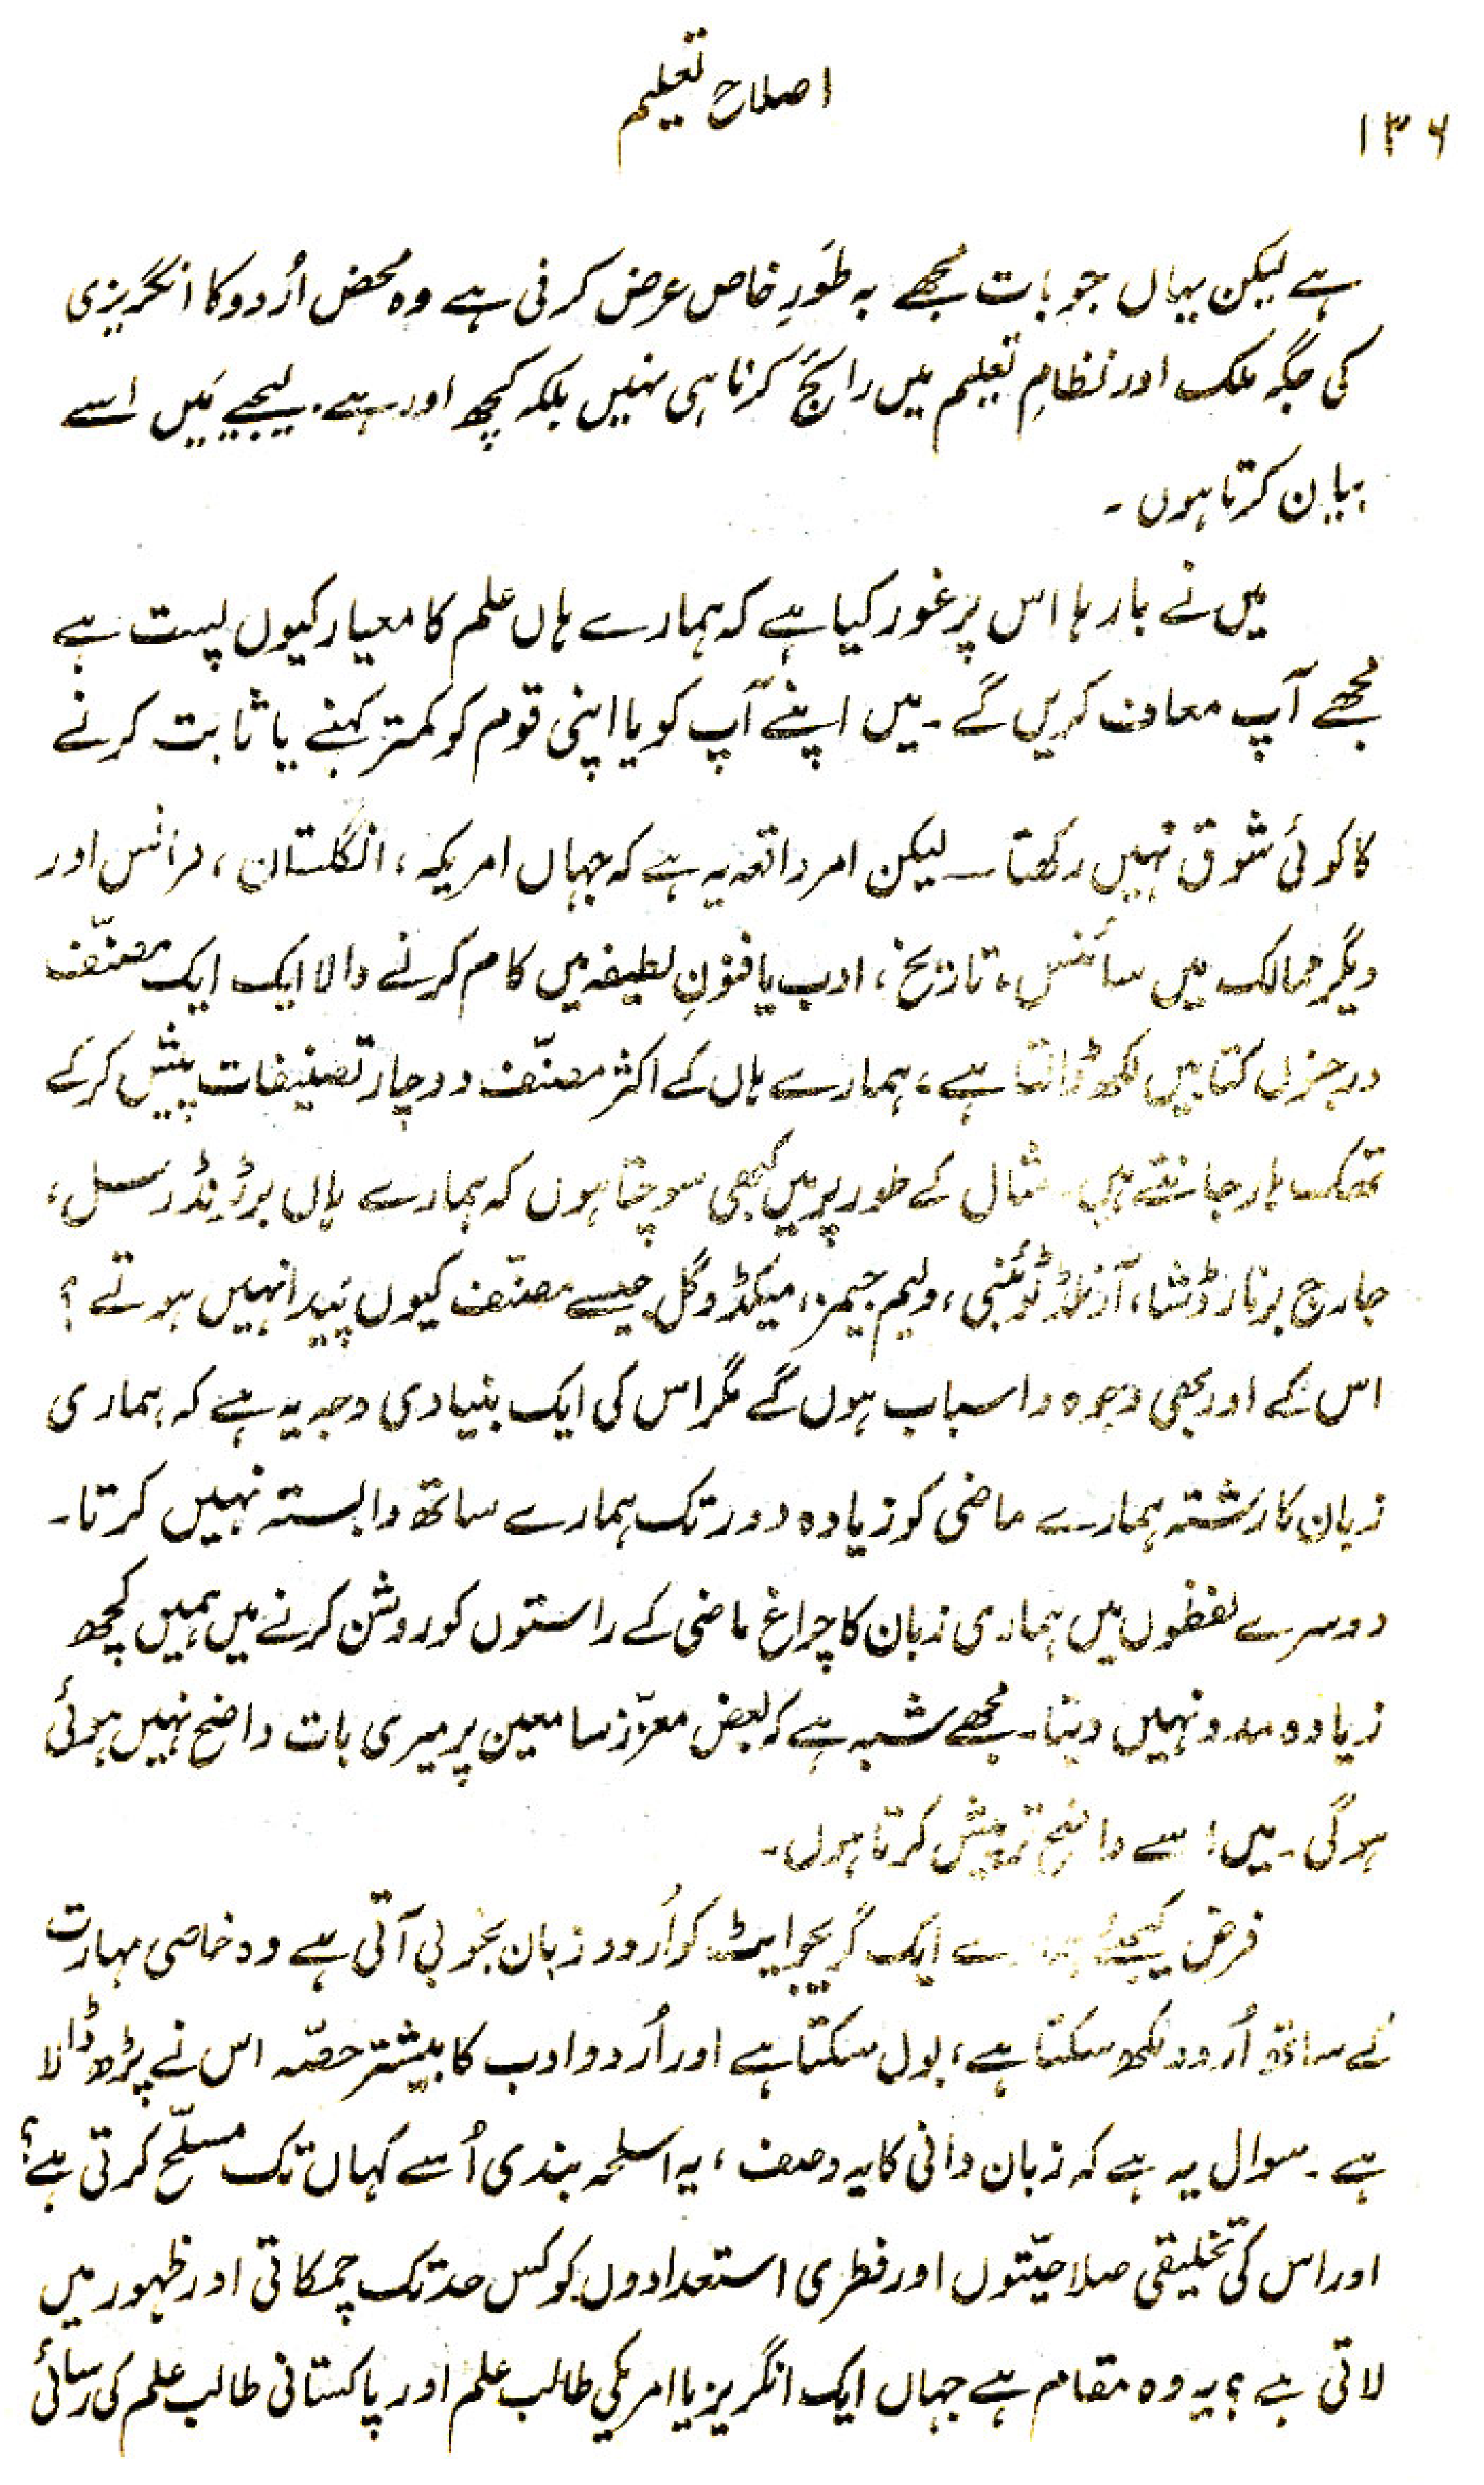 اصلاح تعلیم
۱۳۶
ہے لیکن یہاں جو بات مجھے بہ طَورِ خاص عرض کرنی ہے وہ محض اُردو کا انگریزی
کی جگہ ملک اور نظامِ تعلیم میں رائج کرنا ہی نہیں بلکہ کچھ اور ہے۔ لیجیے مَیں اسے
بیان کرتا ہوں۔
میں نے بار ہا اس پر غور کیا ہے کہ ہمارے ہاں علم کا معیار کیوں پست ہے
مجھے آپ معاف کریں گے۔ میں اپنے آپ کو یا اپنی قوم کو کمتر کہنے یا ثابت کرنے
کا کوئی شوق نہیں رکھتا ۔ لیکن امر واقعہ یہ ہے کہ جہاں امریکہ ، انگلستان ، فرانس اور
دیگر ممالک میں سائنس ، تاریخ ، ادب یا فنونِ لطیفہ میں کام کرنے والا ایک ایک مصنّف
درجنوں کتابیں لکھ ڈالتا ہے ، ہمارے ہاں کے اکثر مصنّف دو چار تصنیفات پیش کر کے
تھک ہار جاتے ہیں۔ مثال کے طور پر میں کبھی سوچتا ہوں کہ ہمارے ہاں برٹرینڈ رسل ،
جارج برنارڈ شا ، آرنلڈ ٹوئنبی ، ولیم جیمز ، میکڈوگل جیسے مصنّف کیوں پَیدا نہیں ہوتے ؟
اس کے اور بھی وجوہ و اسباب ہوں گے مگر اس کی ایک بنیادی وجہ یہ ہے کہ ہماری
زبان کا رشتہ ہمارے ماضی کو زیادہ دور تک ہمارے ساتھ وابستہ نہیں کرتا۔
دوسرے لفظوں میں ہماری زبان کا چراغ ماضی کے راستوں کو روشن کرنے میں ہمیں کچھ
زیادہ مدد نہیں دیتا۔ مجھے شبہ ہے کہ بعض معزّز سامعین پر میری بات واضح نہیں ہوئی
ہو گی۔ میں اسے واضح تر پیش کرتا ہوں۔
فرض کیجئے ہمارے ایک گریجوایٹ کو اُردو زبان بخوبی آتی ہے وہ خاصی مہارت
کے ساتھ اُردو لکھ سکتا ہے ، بول سکتا ہے اور اُردو ادب کا بیشتر حصّہ اس نے پڑھ ڈالا
ہے ۔ سوال یہ ہے کہ زبان دانی کا یہ وصف ، یہ اسلحہ بندی اُسے کہاں تک مسلّح کرتی ہے؟
اور اس کی تخلیقی صلاحیّتوں اور فطری استعدادوں کو کس حد تک چمکاتی اور ظہور میں
لاتی ہے ؟ یہ وہ مقام ہے جہاں ایک انگریز یا امریکی طالب علم اور پاکستانی طالب علم کی رسائی